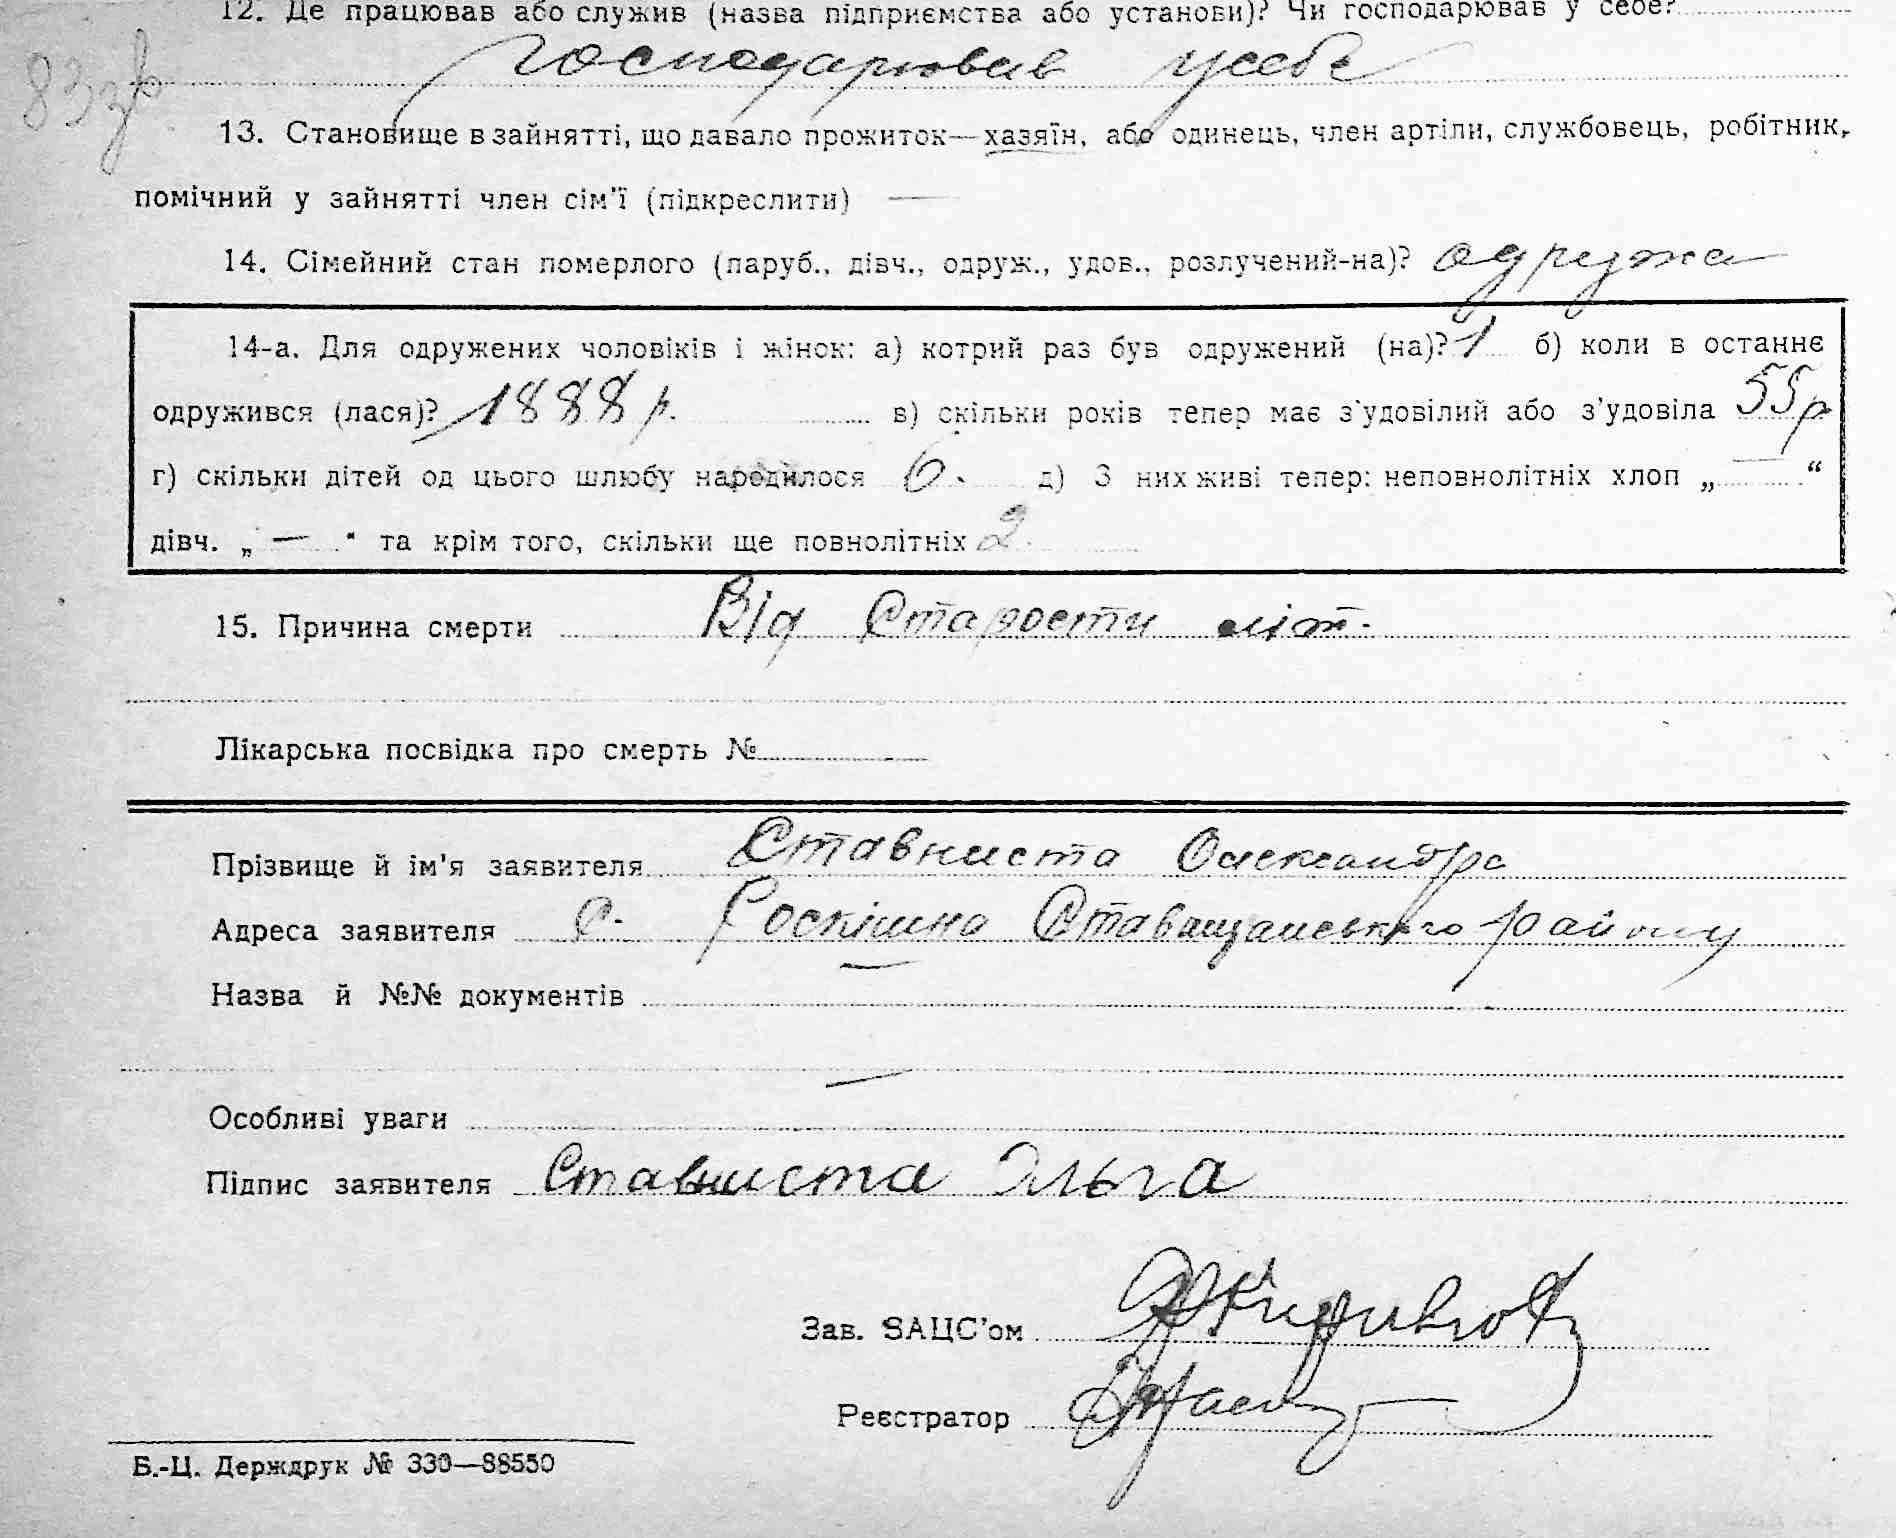 12. Де працював або служив (назва підприємства або установи)? Чи господарював у себе?
господарював усебе
13. Становище в зайнятті, що давало прожиток—хазяїн, або одинець, член артіли, службовець, робітник,
помічний у зайнятті член сім'ї (підкреслити) —
14. Сімейний стан померлого (паруб., дівч., одруж., удов., розлучений-на)? одружа
14-а. Для одружених чоловіків і жінок: а) котрий раз був одружений (на)? 1 б) коли в останнє
одружився (лася)? 1888 р. в) скільки років тепер має з'удовілий або з'удовіла 55 р.
г) скільки дітей од цього шлюбу народилося 6. д) З них живі тепер: неповнолітніх хлоп „ — “
дівч. „ — “ та крім того, скільки ще повнолітніх 2.
15. Причина смерти Від Старости літ.
Лікарська посвідка про смерть №
Прізвище й ім'я заявителя Ставниста Олександра
Адреса заявителя С. Роскішна Ставищанського району
Назва й №№ документів —
Особливі уваги —
Підпис заявителя Ставниста Ольга
Зав. ЗАЦС'ом
Реєстратор
Б.-Ц. Держдрук № 330—88550